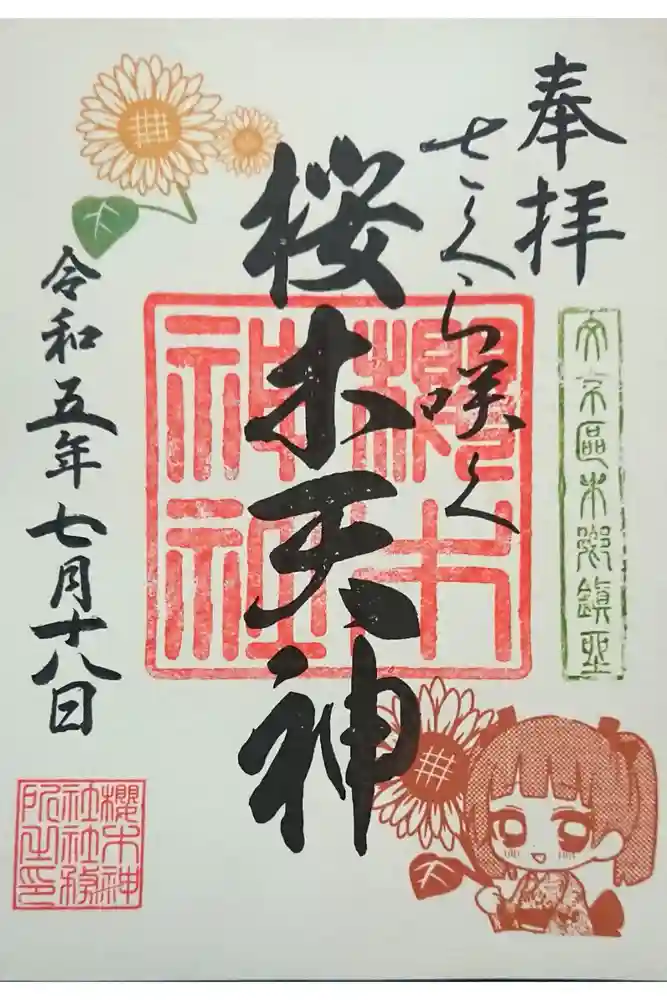 奉拝
さくら咲く
文京區本郷鎮座
桜木天神
櫻木神社
令和五年七月十八日
櫻木神社社務所之印